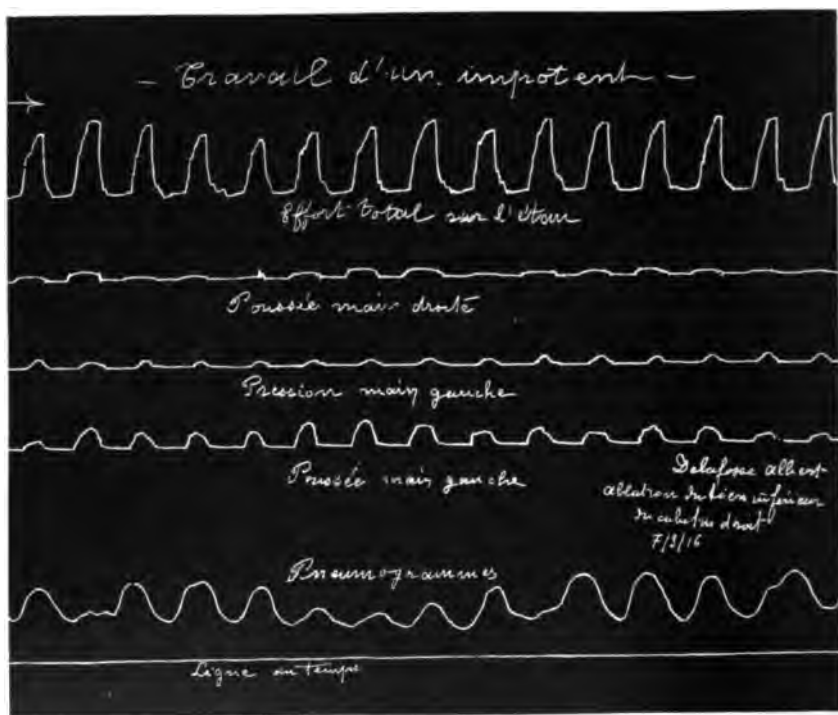 – Travail d'un impotent –
Effort total sur l'étau
Poussée main droite
Pression main gauche
Poussée main gauche
Delafosse Albert
ablation du tiers inférieur
du cubitus droit
7/3/16
Pneumogrammes
Ligne du temps